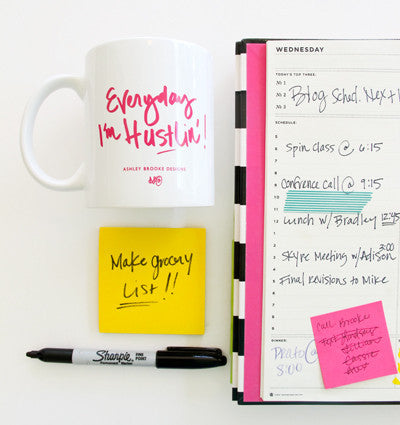 Everyday
I'm Hustlin'!
ASHLEY BROOKE DESIGNS
Make grocery
List!!
Sharpie
FINE POINT
Permanent Marker
WEDNESDAY
TODAY'S TOP THREE:
No 1
No 2
No 3
Blog Sched. Next
SCHEDULE:
Spin class @ 6:15
Confrence call @ 9:15
Lunch w/ Bradley 12:45
Skype Meeting w/ Adison 3:00
Final revisions to Mike
DINNER
8:00
Call Brooke